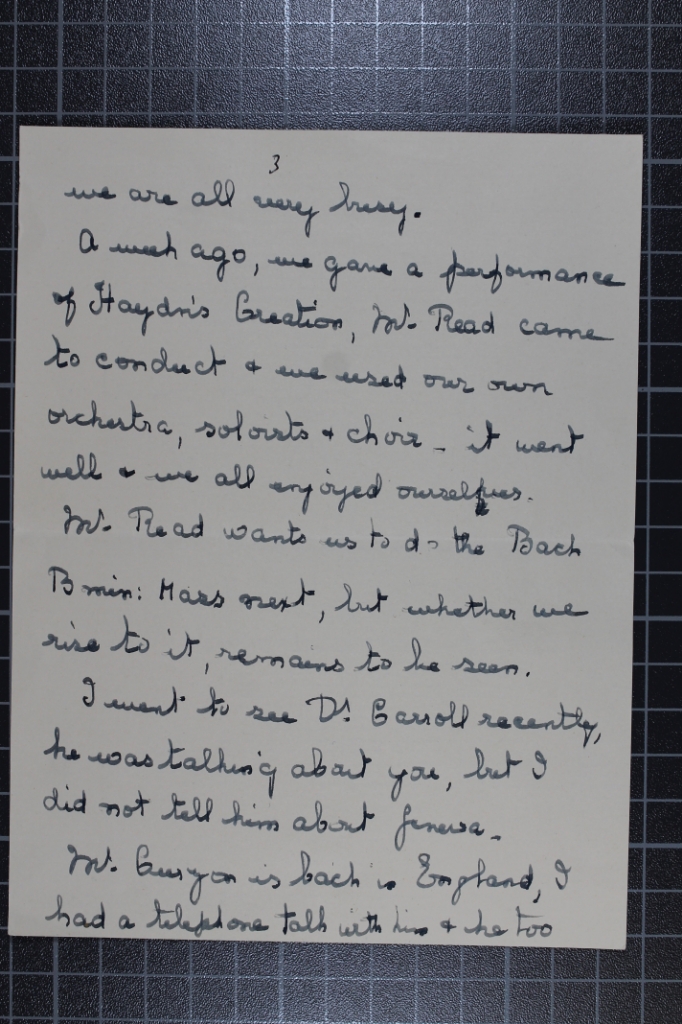 3
we are all very busy.
A week ago, we gave a performance
of Haydn's Creation, Mr. Read came
to conduct & we used our own
orchestra, soloists & choir - it went
well & we all enjoyed ourselves.
Mr. Read wants us to do the Bach
B min: Mass next, but whether we
rise to it, remains to be seen.
I went to see Dr. Carroll recently,
he was talking about you, but I
did not tell him about Geneva.
Mr. Gunyon is back in England, I
had a telephone talk with him & he too